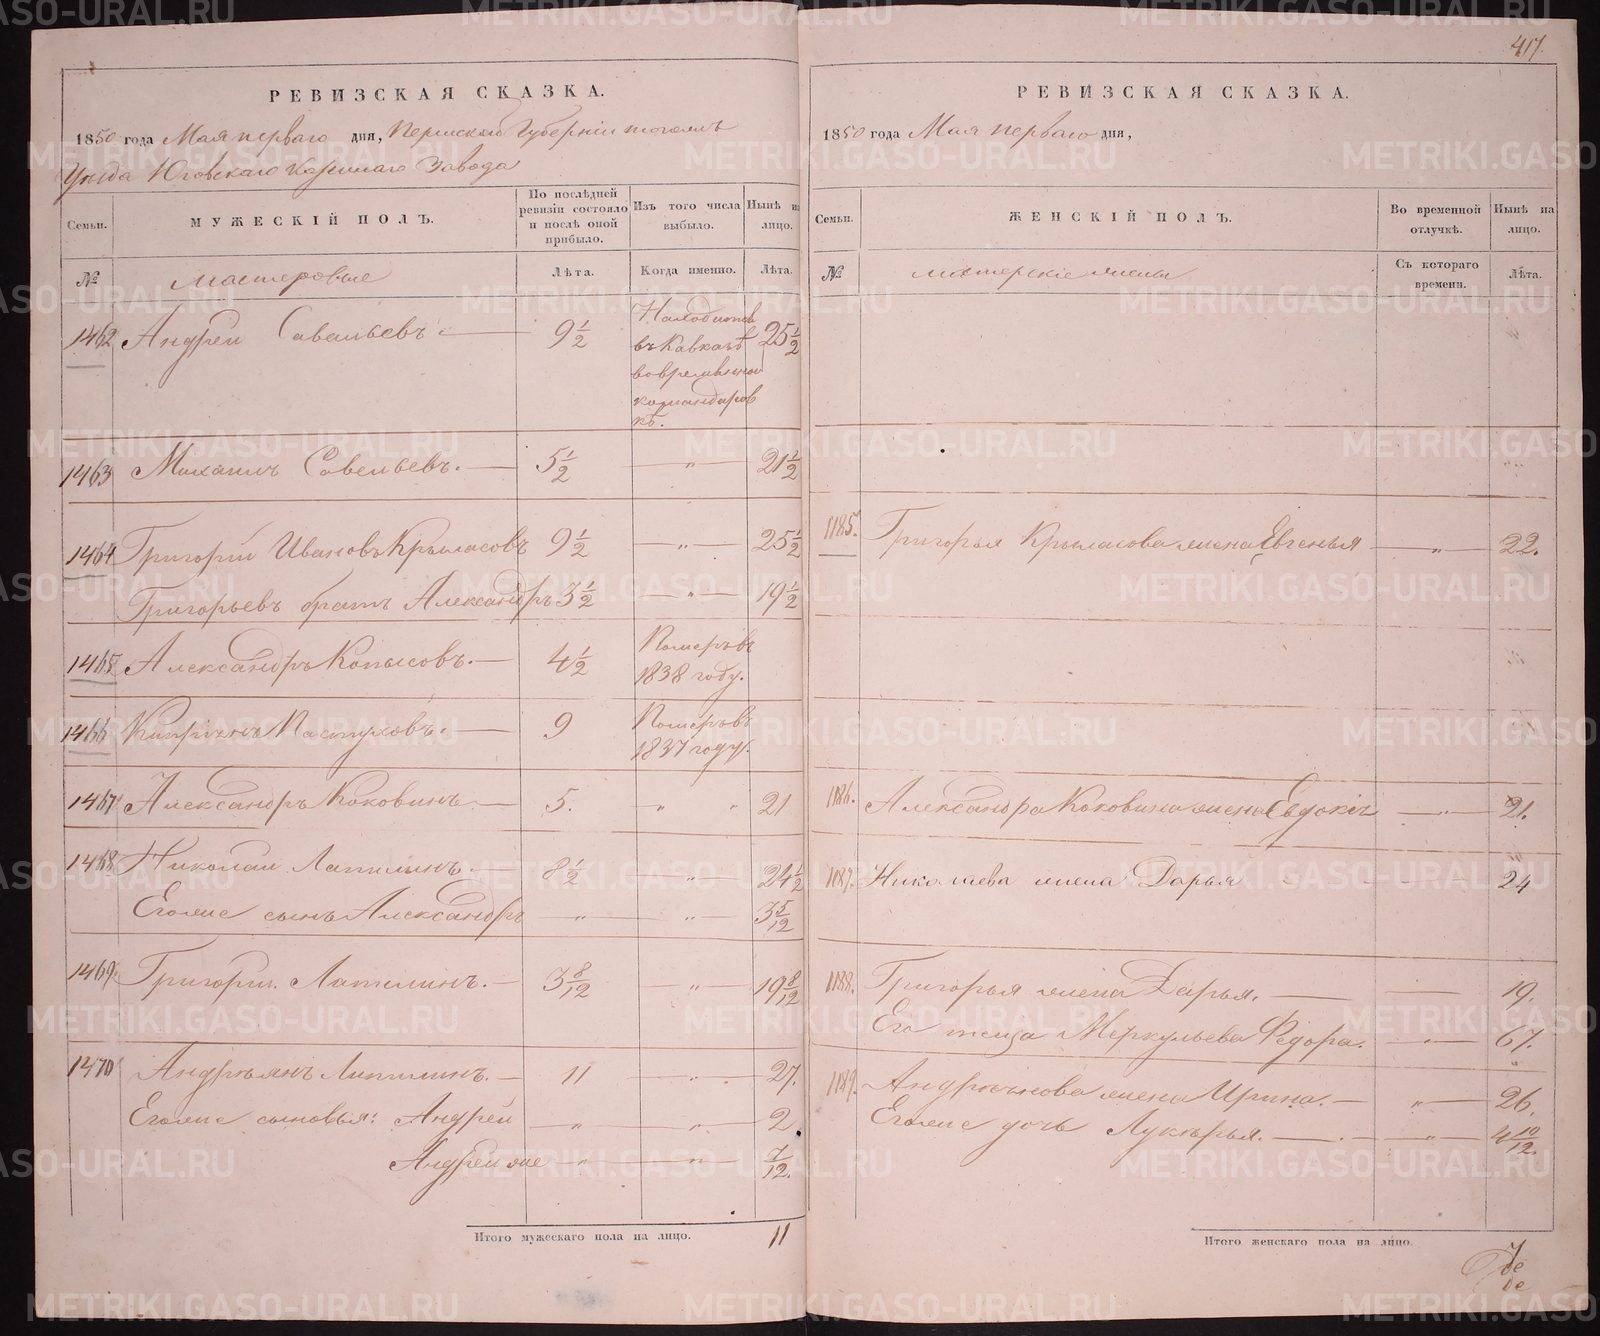 417.
РЕВИЗСКАЯ СКАЗКА.
1850 года Мая перваго дня, Пермской Губернiи тогожъ
Уѣзда Юговскаго Казеннаго Завода
Семьи.
МУЖЕСКIЙ ПОЛЪ.
По послѣдней ревизiи состояло и послѣ оной прибыло.
Изъ того числа выбыло.
Нынѣ на лицо.
№
Мастеровые
Лѣта.
Когда именно.
Лѣта.
1462 Андрей Савельевъ 9 1/2 Находится 25 1/2
въ Кавказѣ
во временной
командиров
кѣ.
1463 Михаилъ Савельевъ. 5 1/2 — „ — 21 1/2
1464 Григорiй Ивановъ Крыласовъ 9 1/2 — „ — 25 1/2
Григорьевъ братъ Александръ 3 1/2 — „ — 19 1/2
1465 Александръ Копысовъ. 4 1/2 Померъ въ
1838 году.
1466 Пастуховъ. 9 Померъ въ
1837 году.
1467 Александръ Коковинъ 5. „ „ 21
1468 Николай Лапшинъ. 8 1/2 — „ — 24 1/2
Его же сынъ Александръ — „ — — „ — 3 5/12
1469 Григорiй Лапшинъ. 3 8/12 — „ — 19 8/12
1470 Андреянъ Лапшинъ. 11 — „ — 27.
Его же сыновья: Андрей — „ — — „ — 2
Андрей же — „ — — „ — 7/12.
Итого мужескаго пола на лицо. 11
РЕВИЗСКАЯ СКАЗКА.
1850 года Мая перваго дня,
Семьи.
ЖЕНСКIЙ ПОЛЪ.
Во временной отлучкѣ.
Нынѣ на лицо.
№
мастерскiе жены
Съ котораго времени.
Лѣта.
1185. Григорья Крыласова жена Евгенья — „ — 22.
1186. Александра Коковина жена Евдокiя — „ — 21.
1187. Николаева жена Дарья 24
1188. Григорья жена Дарья. 19.
Его теща Меркульева Федора. — „ — 67.
1189. Андреянова жена Ирина. — „ — 26.
Его же дочь Лукерья. — „ — 4 10/12.
Итого женскаго пола на лицо. 7
METRIKI.GASO-URAL.RU